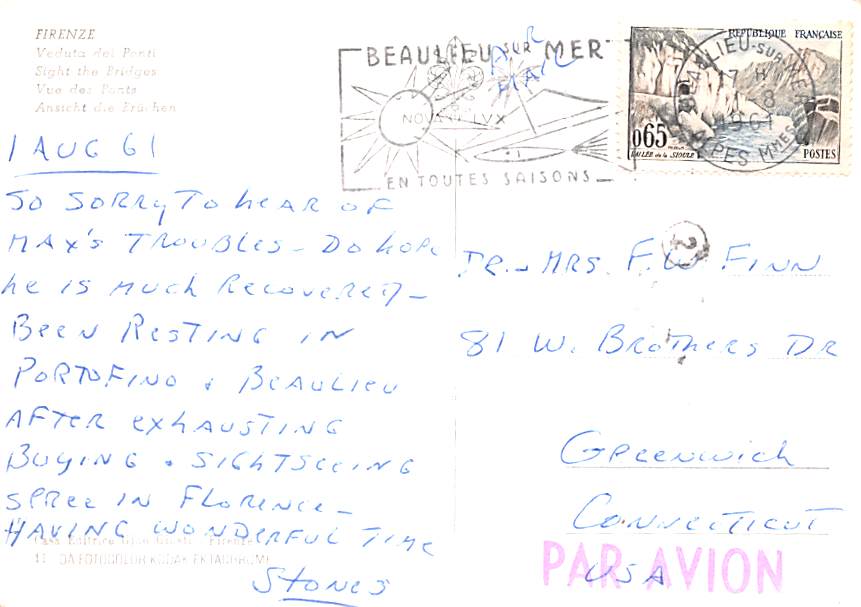 FIRENZE
Veduta dei Ponti
Sight the Bridges
Vue des Ponts
Ansicht die Brüchen
BEAULIEU SUR MER
NOVA LVX
EN TOUTES SAISONS
AIR
MAIL
RÉPUBLIQUE FRANÇAISE
0,65
VALLÉE de la SIOULE
POSTES
BEAULIEU-SUR-MER
17 H
1-8
1961
ALPES MMES
1 AUG 61
SO SORRY TO HEAR OF
MAX'S TROUBLES - DO HOPE
HE IS MUCH RECOVERED -
BEEN RESTING IN
PORTOFINO & BEAULIEU
AFTER EXHAUSTING
BUYING & SIGHTSEEING
SPREE IN FLORENCE -
HAVING WONDERFUL TIME
STONES
DR. - MRS. F. W. FINN
81 W. BROTHERS DR
GREENWICH
CONNECTICUT
USA
PAR AVION
11 DA FOTOCOLOR KODAK EKTACHROME